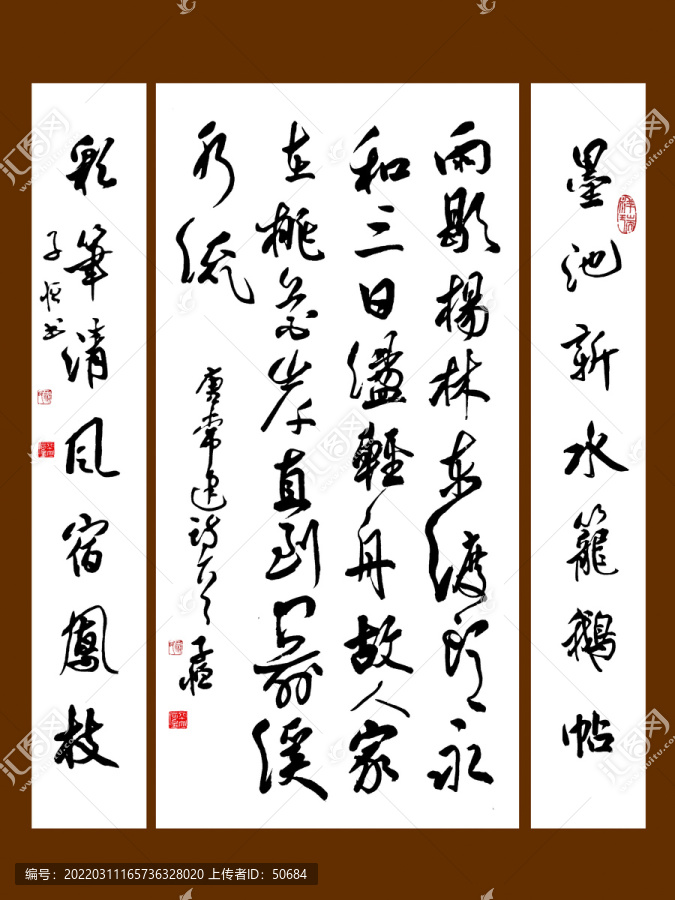 墨池新水籠鵝帖
雨歇楊林東渡頭永
和三日盪輕舟故人家
在桃花岸直到門前溪
水流
唐常建詩
子恒
彩筆清風宿鳳枝
子恒書
编号：20220311165736328020 上传者ID：50684